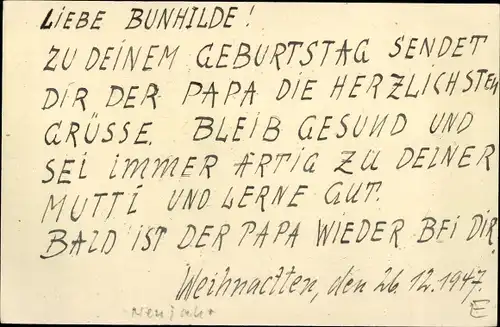 LIEBE BUNHILDE!
ZU DEINEM GEBURTSTAG SENDET
DIR DER PAPA DIE HERZLICHSTEN
GRÜSSE. BLEIB GESUND UND
SEI IMMER ARTIG ZU DEINER
MUTTI UND LERNE GUT.
BALD IST DER PAPA WIEDER BEI DIR.
Weihnachten, den 26.12.1947.
Neujahr
E